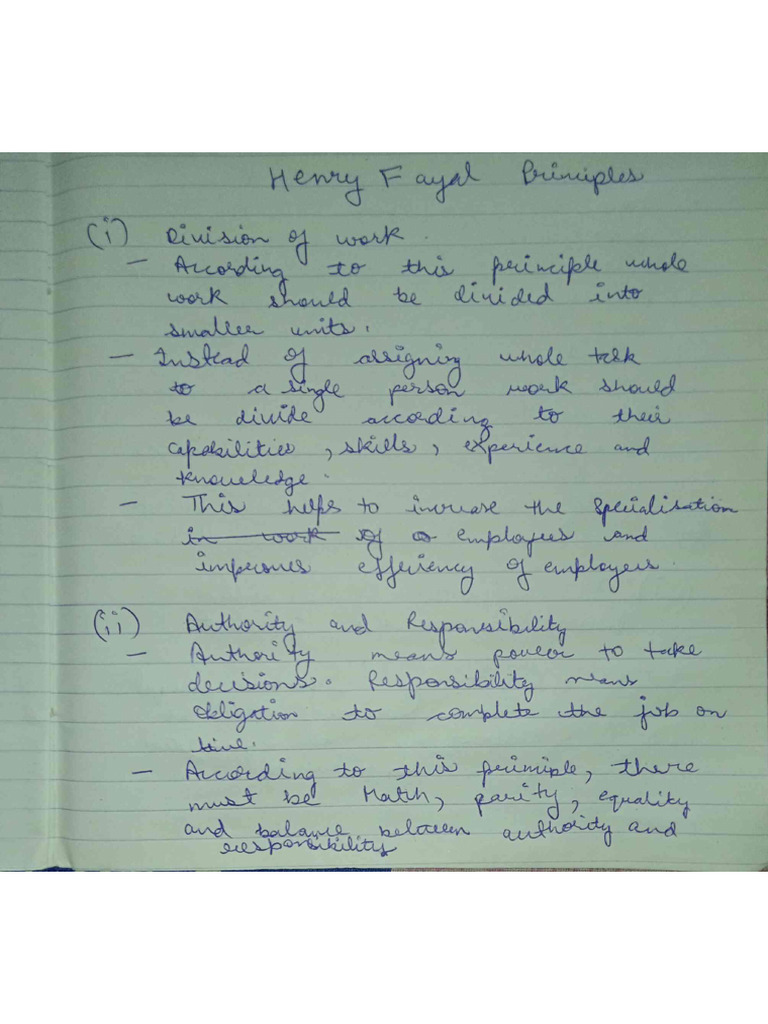 Henry Fayol Principles
(i) Division of work.
- According to this principle whole
work should be divided into
smaller units.
- Instead of assigning whole task
to a single person work should
be divide according to their
capabilities, skills, experience and
knowledge.
- This helps to increase the specialisation
in work of employees and
improves efficiency of employees.
(ii) Authority and Responsibility
- Authority means power to take
decisions. Responsibility means
obligation to complete the job on
time.
- According to this principle, there
must be Match, parity, equality
and balance between authority and
responsibility